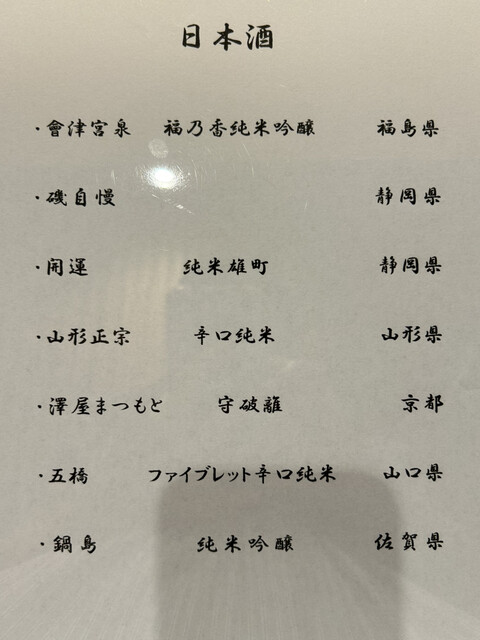 日本酒
・會津宮泉 福乃香純米吟醸 福島県
・磯自慢 静岡県
・開運 純米雄町 静岡県
・山形正宗 辛口純米 山形県
・澤屋まつもと 守破離 京都
・五橋 ファイブレット辛口純米 山口県
・鍋島 純米吟醸 佐賀県